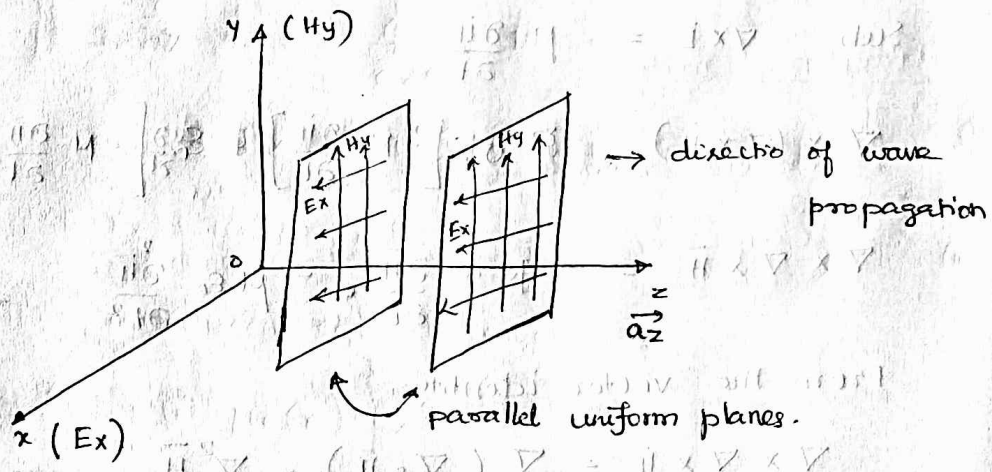 Y (Hy)
Hy
Hy
→ directio of wave
propagation
Ex
Ex
0
z
az
x (Ex)
parallel uniform planes.